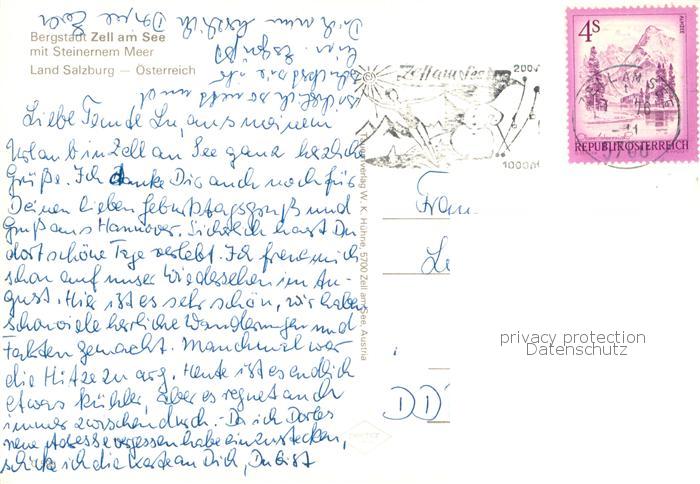 Bergstadt Zell am See
mit Steinernem Meer
Land Salzburg — Österreich
Liebe Tante Lu, aus meinem
Urlaub in Zell am See ganz herzliche
Grüße. Ich danke Dir auch noch für
Deinen lieben Geburtstagsgruß und
Gruß aus Hannover. Sicherlich hast Du
dort schöne Tage verlebt. Ich freue mich
schon auf unser Wiedersehen im Au-
gust. Hier ist es sehr schön, wir haben
schon viele herrliche Wanderungen und
Fahrten gemacht. Manchmal war
die Hitze zu arg. Heute ist es endlich
etwas kühler, aber es regnet auch
immer zwischendurch. - Da ich Dortes
neue Adresse vergessen habe einzustecken,
schicke ich die Karte an Dich, Du bist
Dich
herzlich
Verlag W. K. Hühne, 5700 Zell am See, Austria
Zell am See
2000
1000m
4S
REPUBLIK ÖSTERREICH
ZELL AM SEE
5700
Frau
Le
DD
privacy protection
Datenschutz